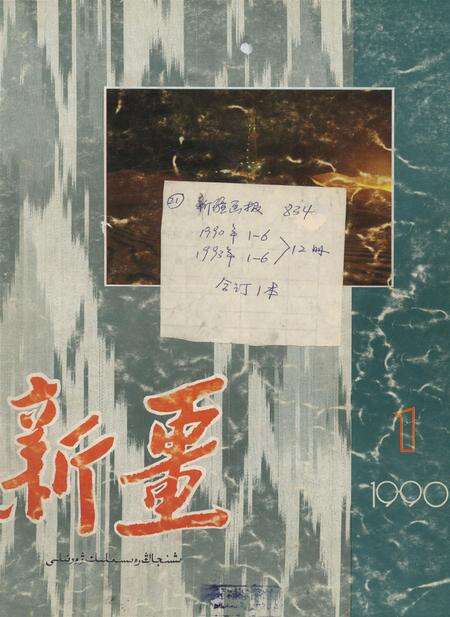 ㉑ 新疆画报 834
1990年 1-6
1993年 1-6 > 12册
合订1本
新疆
1
1990
شىنجاڭ رەسىملىك ژۇرنىلى